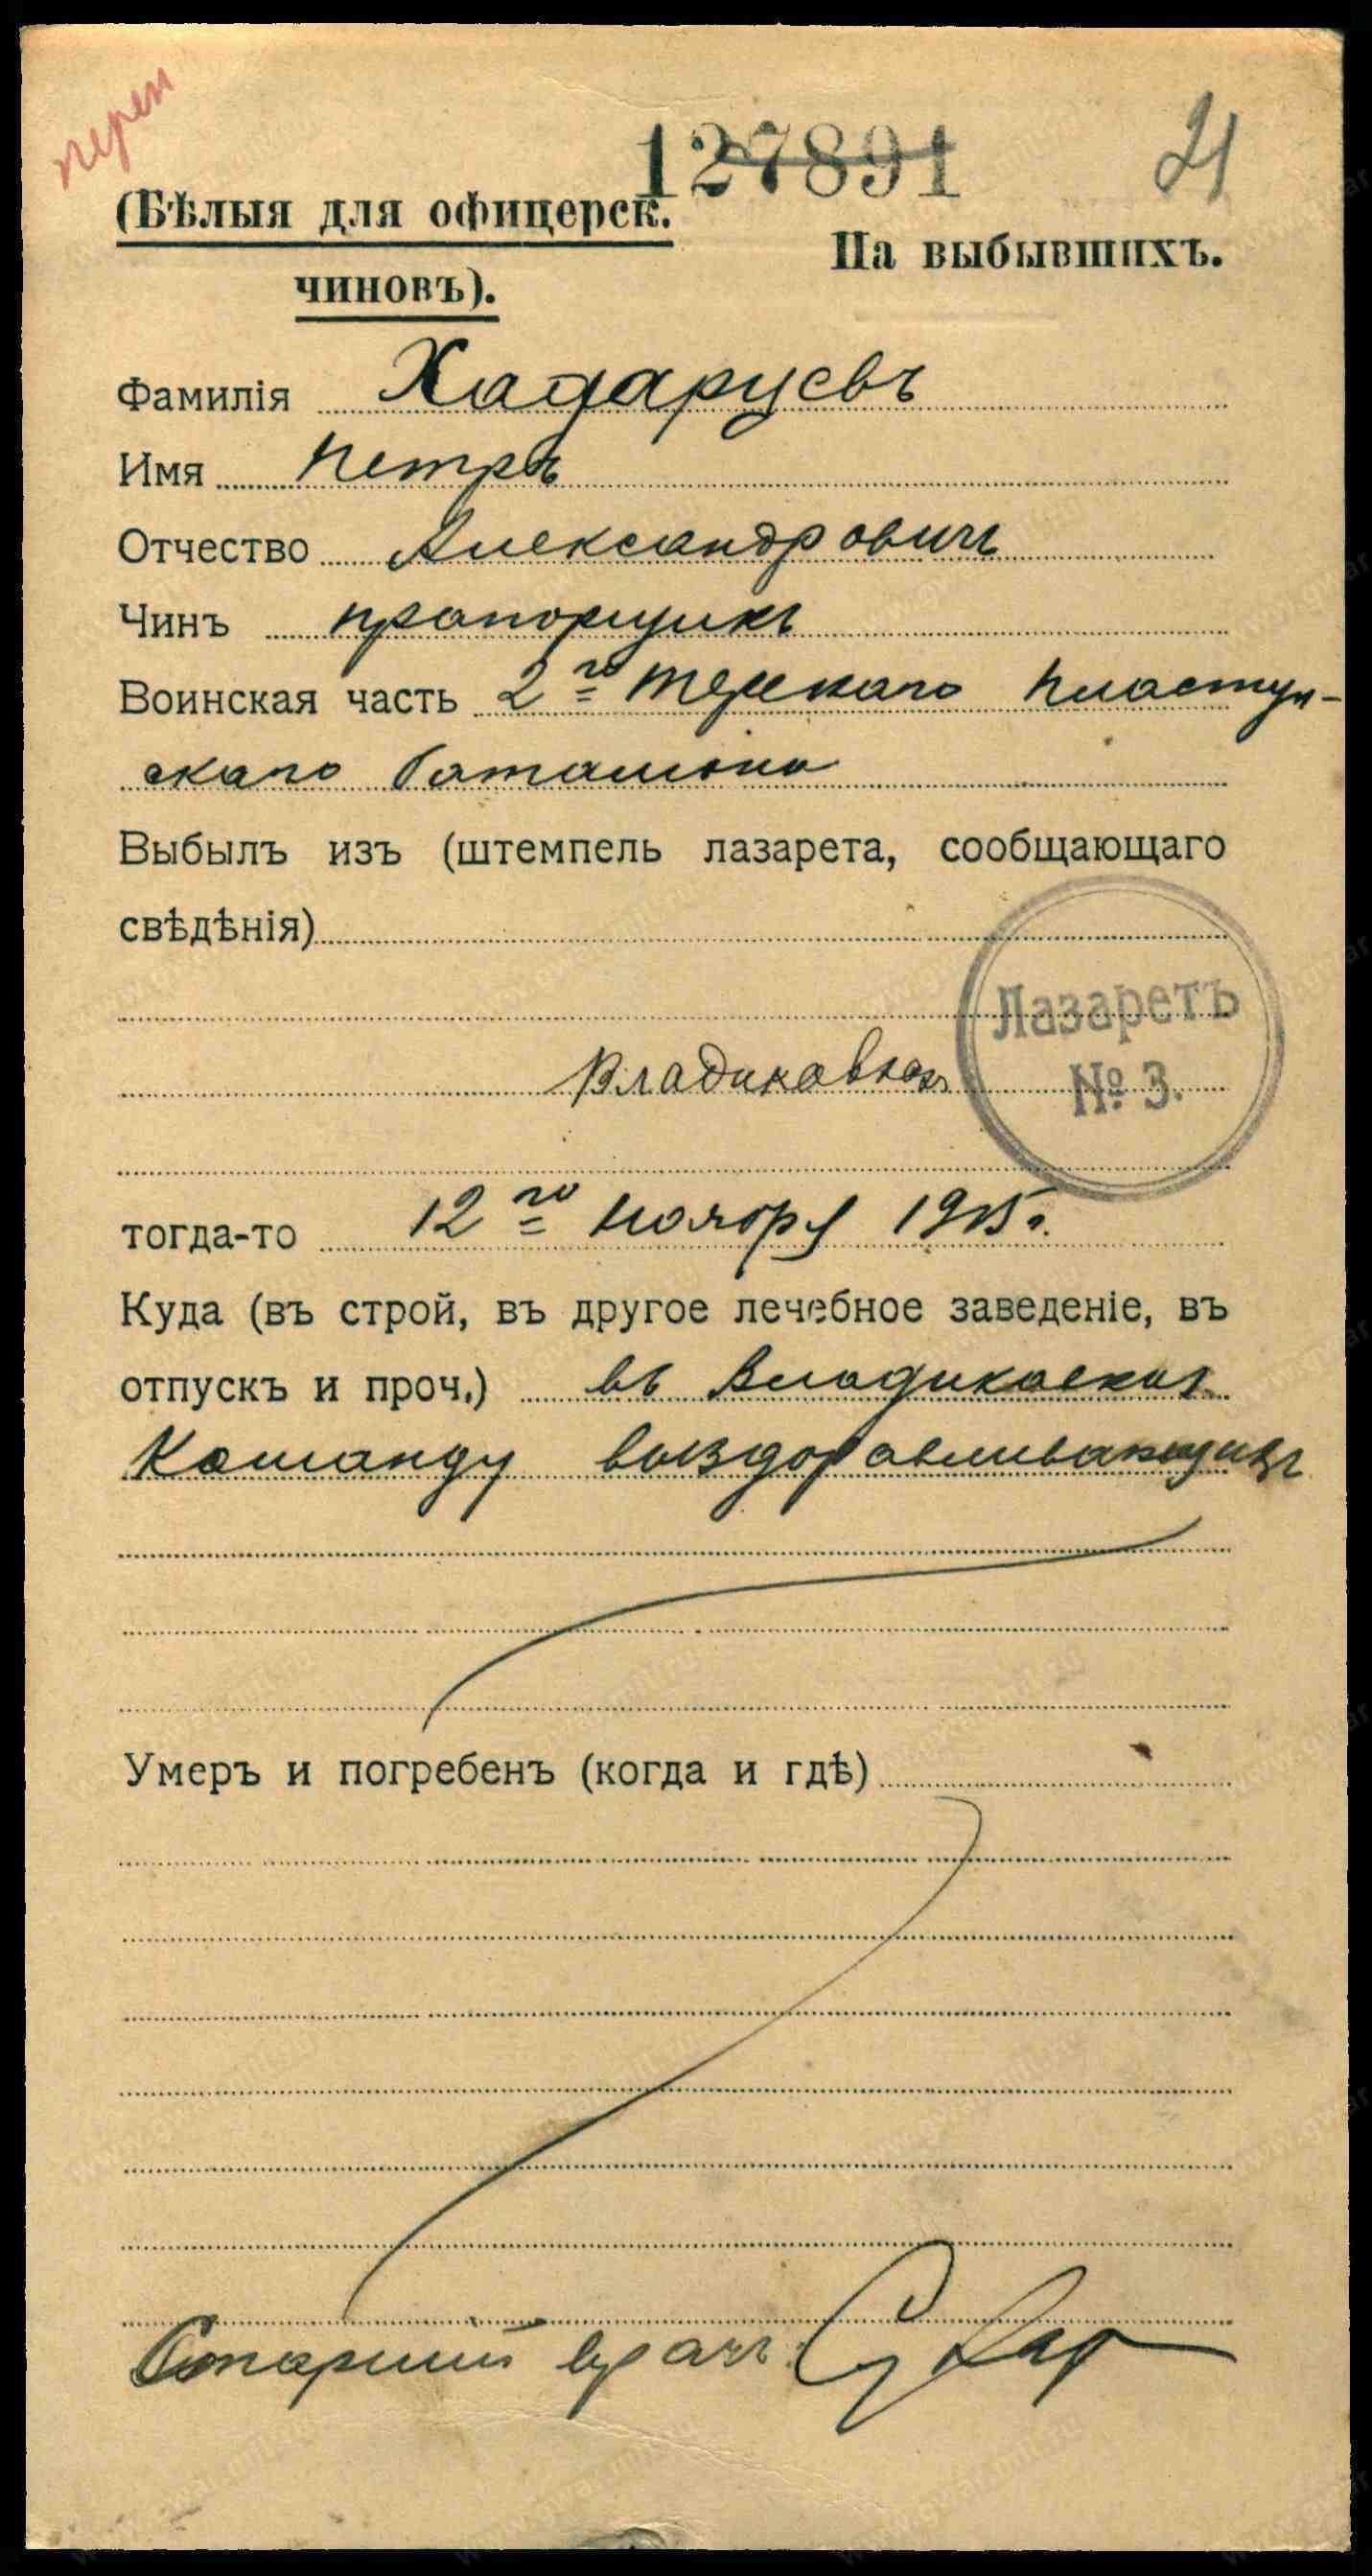 перен
127891
21
(Бѣлыя для офицерск.
чиновъ).
На выбывшихъ.
Фамилія Хадарцевъ
Имя Петръ
Отчество Александровичъ
Чинъ прапорщикъ
Воинская часть 2го Терскаго Пластун-
скаго баталіона
Выбылъ изъ (штемпель лазарета, сообщающаго
свѣдѣнія)
Лазаретъ
№ 3.
Владикавказъ
тогда-то 12го ноября 1915г.
Куда (въ строй, въ другое лечебное заведеніе, въ
отпускъ и проч.) въ Владикавказ.
Команду выздоравливающихъ
Умеръ и погребенъ (когда и гдѣ)
Старшій врачъ: